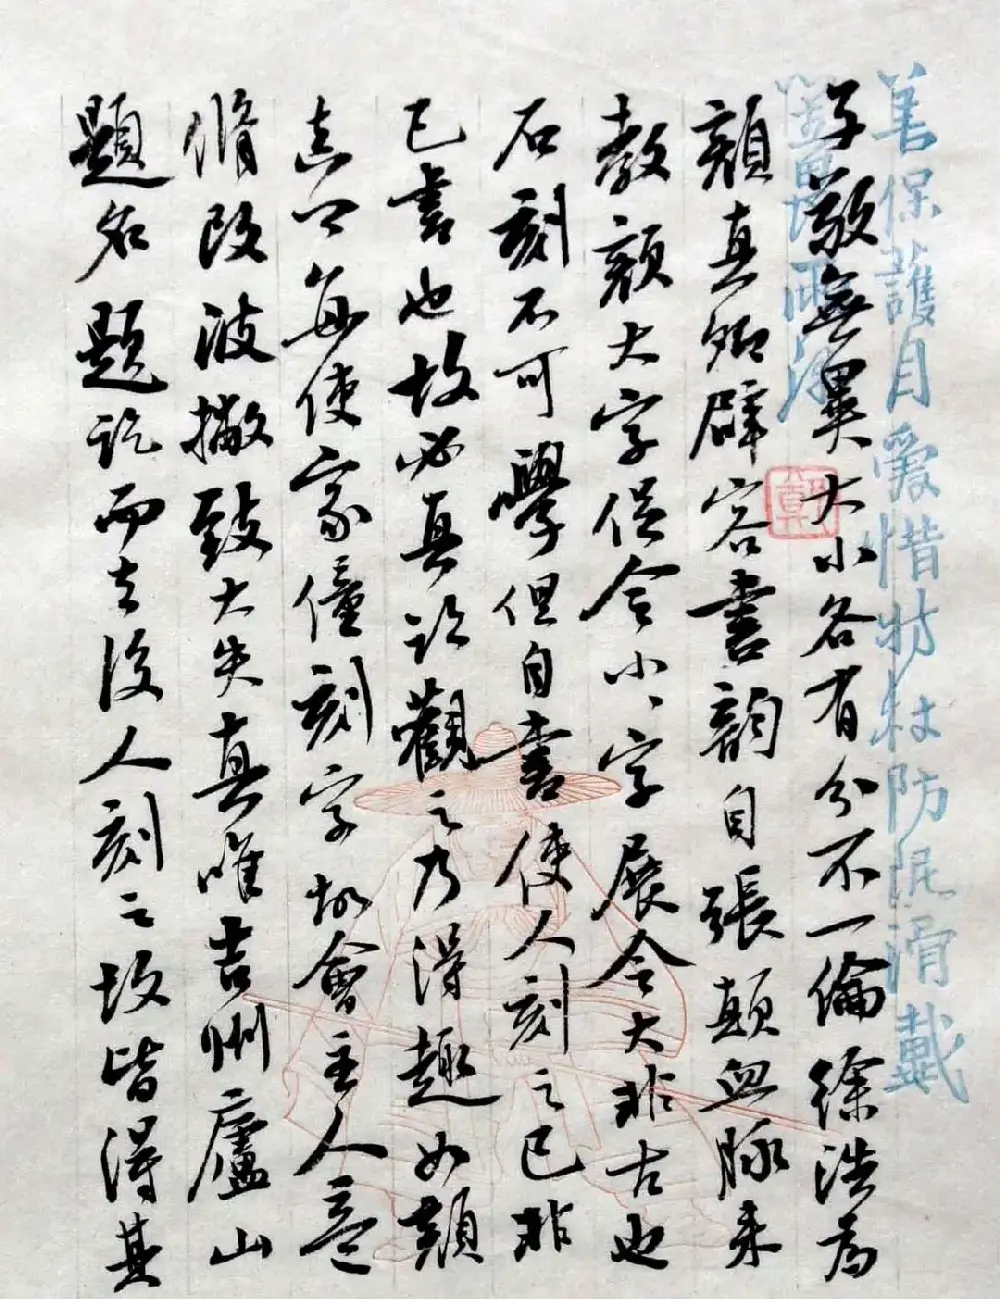 善保護自愛惜持杖防泥滑戴
雨
子敬無異大小各有分不一倫徐浩為
顏真卿辟客書韻自張顛血脉来
教顏大字促令小小字展令大非古也
石刻不可學但自書使人刻之已非
己書也故必真跡觀之乃得趣如顏
真卿每使家僮刻字故會主人意
脩改波撇致大失真唯吉州廬山
題名題訖而去後人刻之故皆得其